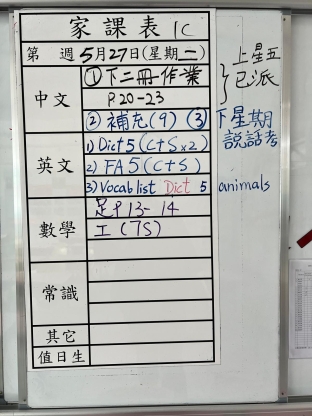 家課表 1C
第 週 5月27日(星期一)
中文
① 下二冊-作業
P.20-23
} 上星五
已派
② 補充(9) ③ 下星期
說話考
英文
1) Dict 5 (C+S x2)
2) FA 5 (C+S)
3) Vocab list Dict 5 animals
數學
足P13-14
工(7S)
常識
其它
值日生